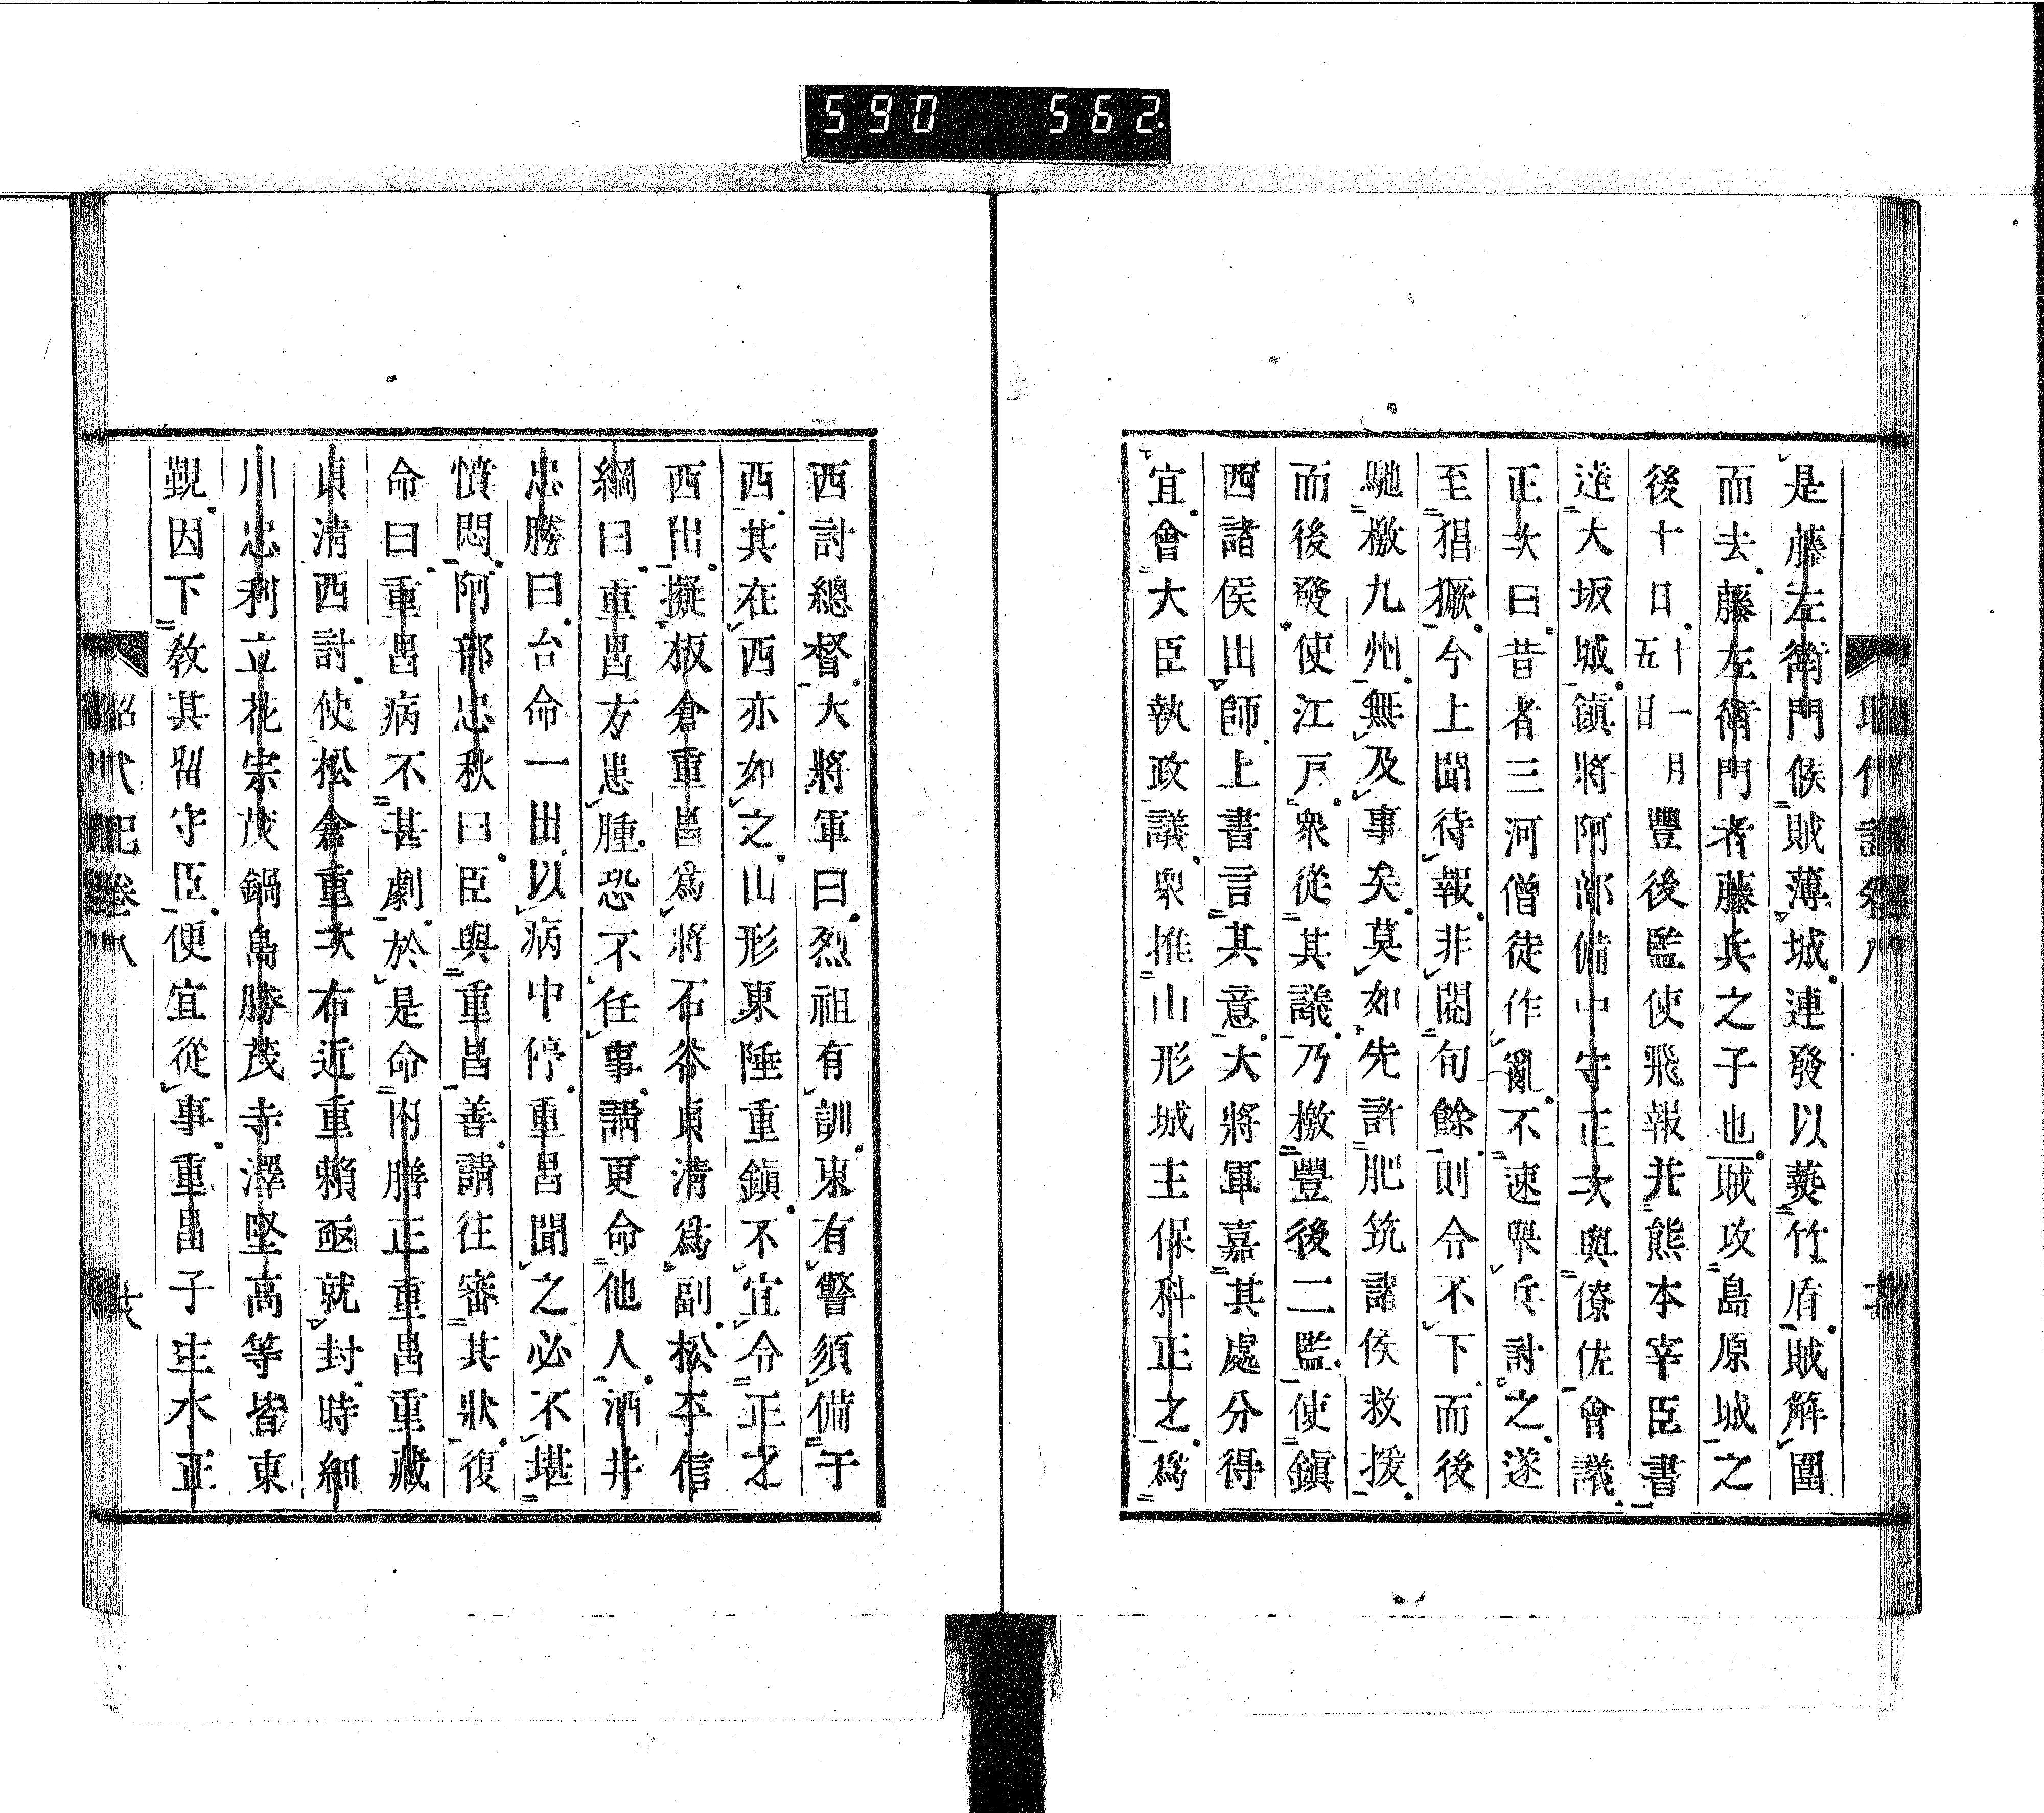 590 562
是藤左衛門候賊薄城連發以䕠竹盾賊解圍
而去藤左衛門者藤兵之子也賊攻島原城之
後十日十一月五日豐後監使飛報并熊本宰臣書
達大坂城鎮將阿部備中守正次與僚佐會議
正次曰昔者三河僧徒作亂不速舉兵討之遂
至猖獗今上聞待報非閱旬餘則令不下而後
馳檄九州無及事矣莫如先許肥筑諸侯救援
而後發使江戸衆從其議乃檄豐後二監使鎮
西諸侯出師上書言其意大將軍嘉其處分得
宜會大臣執政議衆推山形城主保科正之爲
西討總督大將軍曰烈祖有訓東有警須備于
西其在西亦如之山形東陲重鎮不宜令正之
西出擬板倉重昌爲將石谷貞清爲副松平信
綱曰重昌方患腫恐不任事請更命他人酒井
忠勝曰台命一出以病中停重昌聞之必不堪
憤悶阿部忠秋曰臣與重昌善請往審其狀復
命曰重昌病不甚劇於是命内膳正重昌重藏
貞清西討使松倉重次布近重賴亟就封時細
川忠利立花宗茂鍋島勝茂寺澤堅高等皆東
覲因下敎其留守臣便宜從事重昌子主水正
昭代記卷八